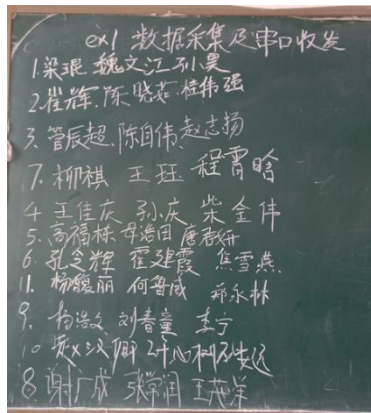 ex1 数据采集及串口收发
1.梁琨 魏文江 孙昊
2.崔辉.陈晓茹.桂伟强
3.管辰超.陈自伟.赵志扬
7.柳祺 王珏 程霄晗
4 王佳庆 孙庆 柴金伟
5.高福栋 母浩田 唐君妍
6.孔令辉 霍建霞 焦雪燕.
11.杨馥丽 何鲁威 郑永林
9. 杨浩文 刘春童 李宁
10
8.谢广成 张学润 王英洋